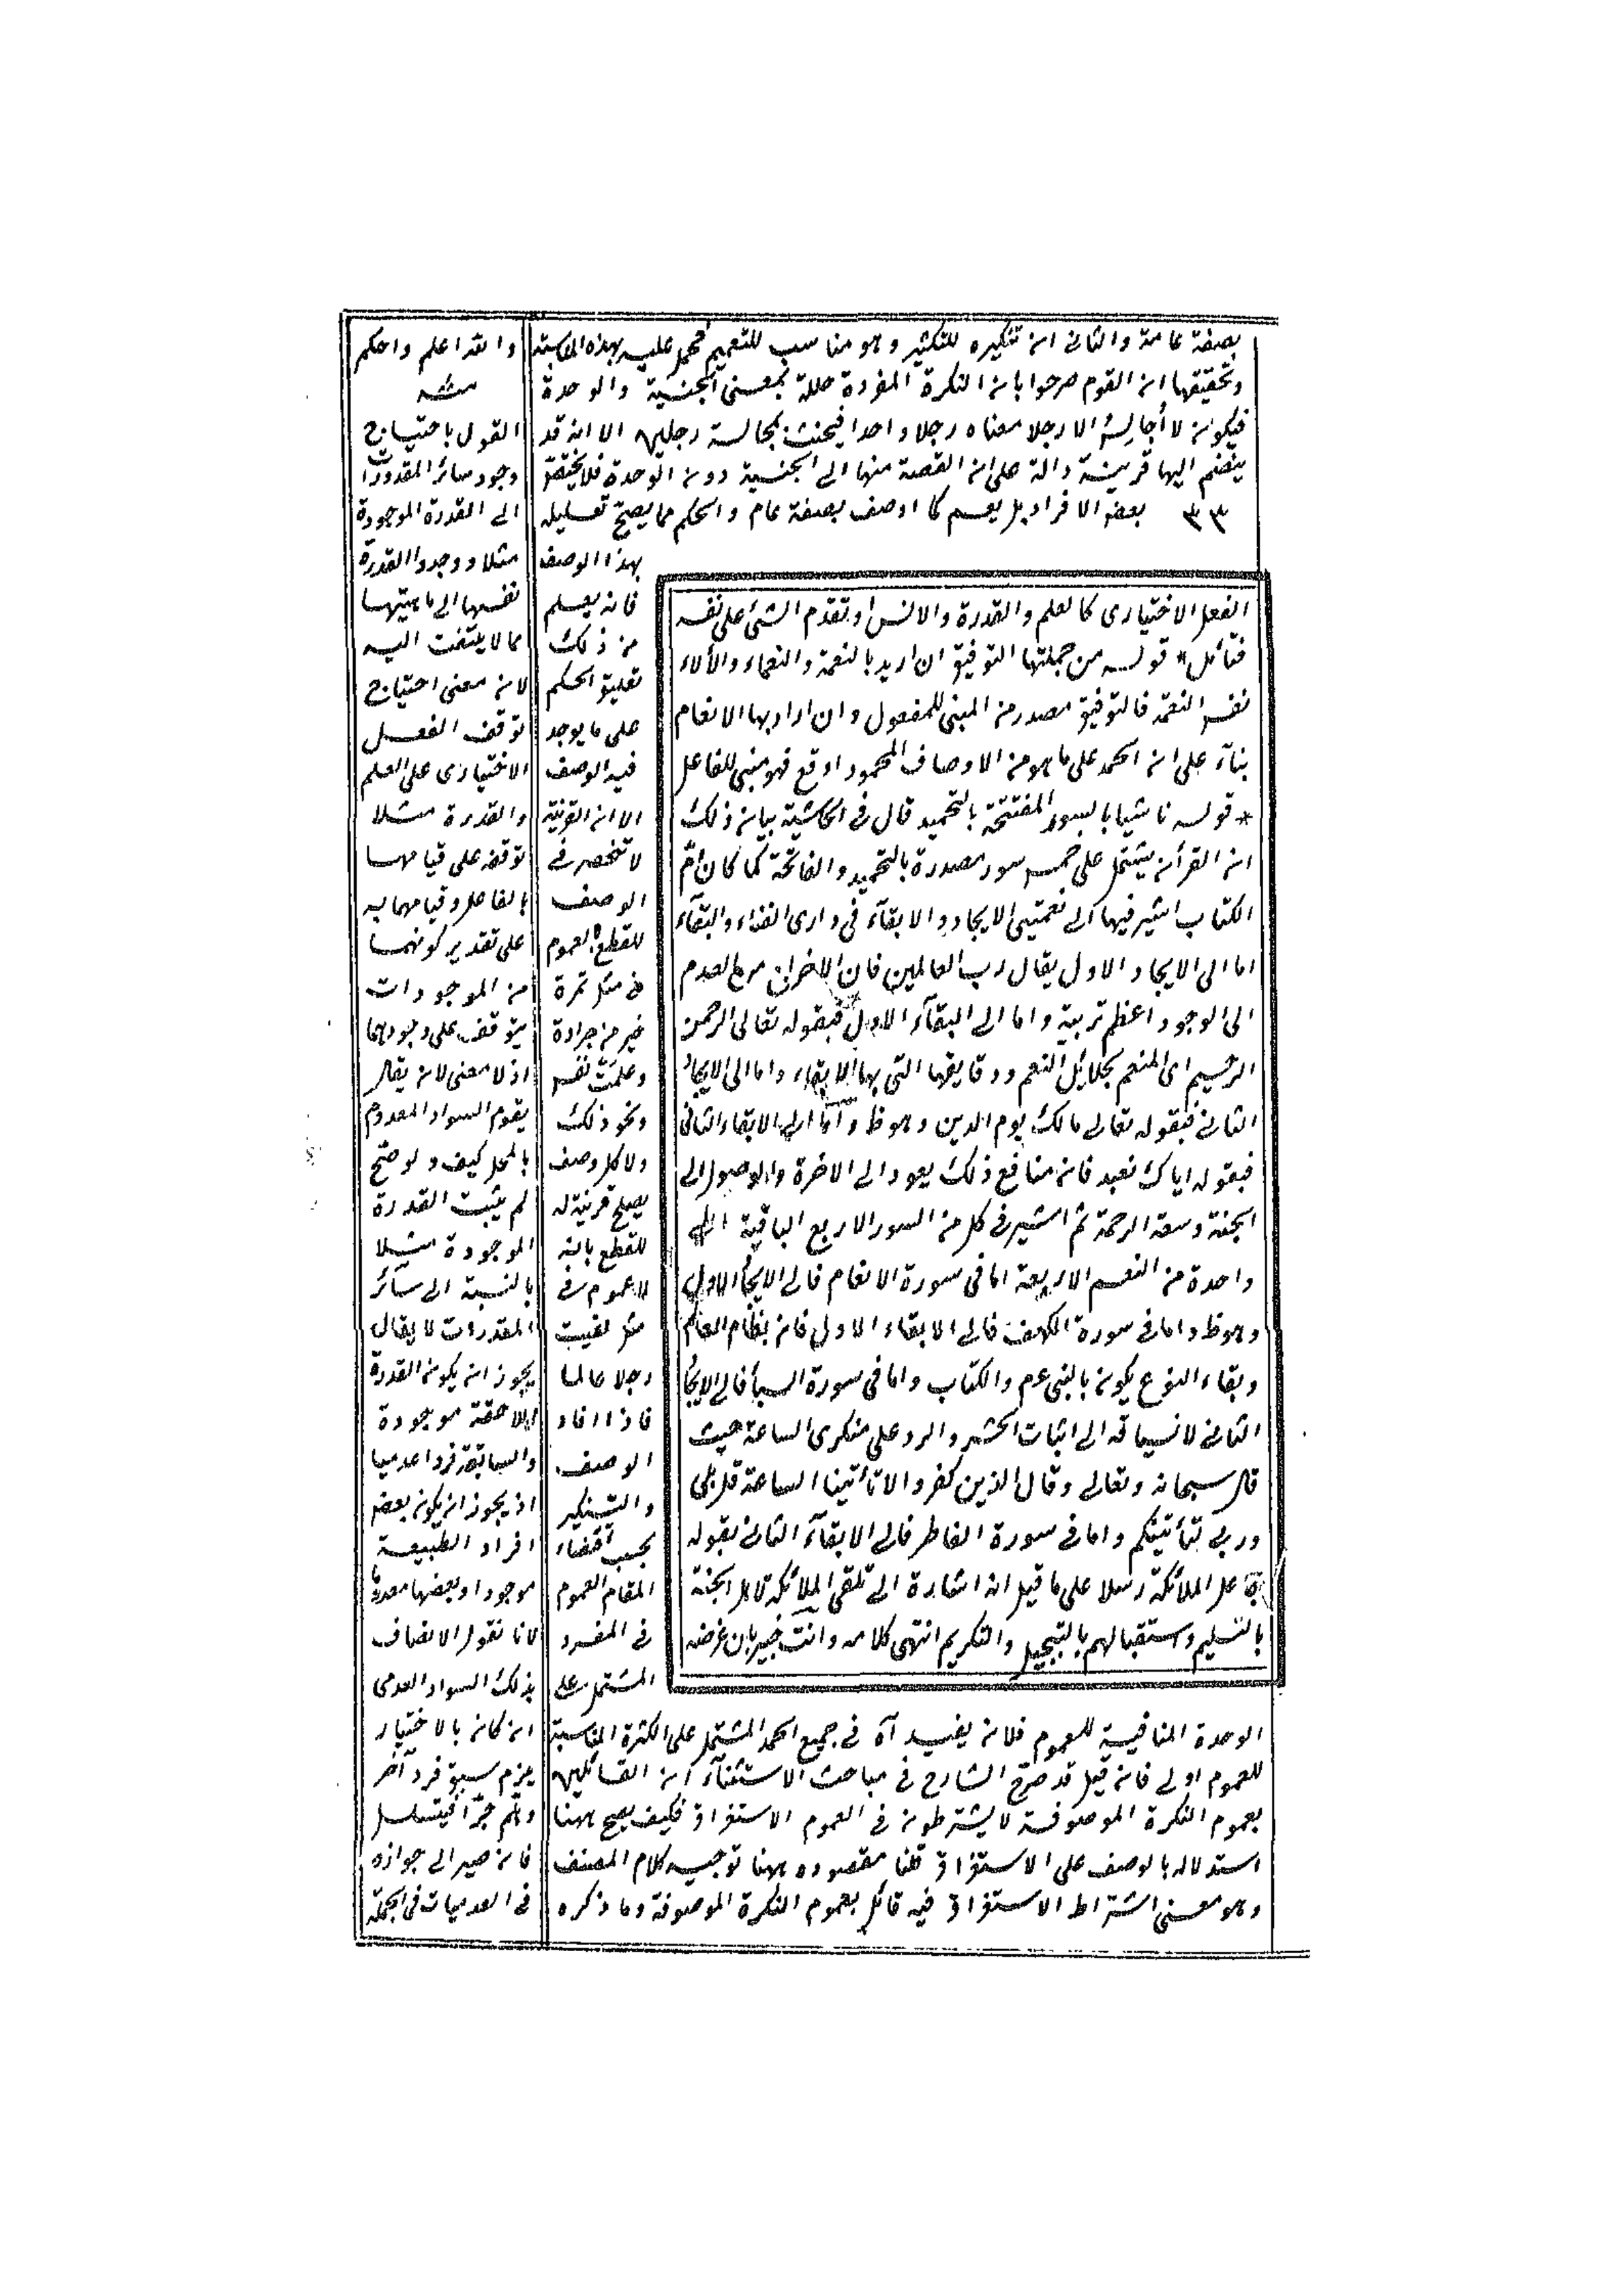 بصفة عامة والثاني ان تنكيره للتكثير وهو مناسب للتعميم فحمل عليه بهذه المناسبة
وتحقيقها ان القوم صرحوا بان النكرة المفردة حاملة لمعنى الجنسية والوحدة
فيكون لا أجالس الا رجلا معناه رجلا واحدا فيحنث بمجالسة رجلين الا انه قد
ينضم اليها قرينة دالة على ان القصد منها الى الجنسية دون الوحدة فلا يختص
٣٣ بعض الافراد بل يعم كما اذا وصف بصفة عام والحكم مما يصح تعليله
بهذا الوصف
فانه يعلم
من ذلك
تعليق الحكم
على ما يوجد
فيه الوصف
الا ان القرينة
لا تنحصر في
الوصف
للقطع بالعموم
في مثل تمرة
خير من جرادة
وعلمت نفس
ونحو ذلك
ولا كل وصف
يصلح قرينة له
للقطع بانه
لا عموم في
مثل لقيت
رجلا عالما
فاذا افاد
الوصف
والتنكير
بحسب اقتضاء
المقام العموم
في المفرد
المشتمل على
الوحدة المنافية للعموم فلان يفيد آه في جميع الحمد المشتمل على الكثرة المناسبة
للعموم اولى فان قيل قد صرح الشارح في مباحث الاستثناء ان القائلين
بعموم النكرة الموصوفة لا يشترطون في العموم الاستغراق فكيف يصح ههنا
استدلاله بالوصف على الاستغراق قلنا مقصوده ههنا توجيه كلام المصنف
وهو معنى اشتراط الاستغراق فيه قائل بعموم النكرة الموصوفة وما ذكره
الفعل الاختيارى كالعلم والقدرة والانس او تقدم الشئ على نفسه
فتأمل * قوله من جملتها التوفيق ان اريد بالنعمة والنعماء والألاء
نفس النعمة فالتوفيق مصدر من المبنى للمفعول وان اراد بها الانعام
بناء على ان الحمد على ما هو من الاوصاف المحمود اوقع فهو مبنى للفاعل
* قوله ناشيا بالسور المفتتحة بالتحميد قال في الحاشية بيان ذلك
ان القرأن يشتمل على خمس سور مصدرة بالتحميد والفاتحة كما كان ام
الكتاب اشير فيها الى نعمتي الايجاد والابقاء في دارى الفناء والبقاء
اما الى الايجاد الاول يقال رب العالمين فان الاخراج من العدم
الى الوجود اعظم تربية واما الى البقاء الاول فبقوله تعالى الرحمن
الرحيم اى المنعم بجلائل النعم ودقايقها التى بها الابقاء واما الى الايجاد
الثاني فبقوله تعالى مالك يوم الدين وهو ظ واما الى الابقاء الثانى
فبقوله اياك نعبد فان منافع ذلك يعود الى الاخرة والوصول الى
الجنة وسعة الرحمة ثم اشير في كل من السور الاربع الباقية الى
واحدة من النعم الاربعة اما في سورة الانعام فالى الايجاد الاول
وهو ظ واما في سورة الكهف فالى الابقاء الاولى فان نظام العالم
وبقاء النوع يكون بالنبى عم والكتاب واما في سورة السبأ فالى الايجاد
الثاني لانسياقه الى اثبات الحشر والرد على منكرى الساعة حيث
قال سبحانه وتعالى وقال الذين كفروا لا تأتينا الساعة قل بلى
وربي لتأتينكم واما في سورة الفاطر فالى الابقاء الثاني بقوله
جاعل الملائكة رسلا على ما قيل انه اشارة الى تلقى الملائكة لاهل الجنة
بالتسليم واستقبالهم بالتبجيل والتكريم انتهى كلامه وانت خبير بان غرضه
والله اعلم واحكم
منه
القول باحتياج
وجود سائر المقدورات
الى القدرة الموجودة
مثلا ووجدوا القدرة
نفسها الى ماهيتها
مما لا يلتفت اليه
لان معنى احتياج
توقف الفعل
الاختيارى على العلم
والقدرة مثلا
توقفه على قيامهما
بالفاعل وقيامهما به
على تقدير كونهما
من الموجودات
يتوقف على وجودهما
اذ لا معنى لان يقال
يقوم السواد المعدوم
بالمحل كيف ولو صح
لم يثبت القدرة
الموجودة مثلا
بالنسبة الى سائر
المقدرات لا يقال
يجوز ان يكون القدرة
اللاحقة موجودة
والسابقة فردا عدميا
اذ يجوز ان يكون بعض
افراد الطبيعة
موجودا وبعضها معدوما
لانا نقول الاتصاف
بذلك السواد العدمى
ان كان بالاختيار
يلزم سبق فرد آخر
وهلم جرا فيتسلسل
فان صير الى جوازه
في العدميات في الجملة